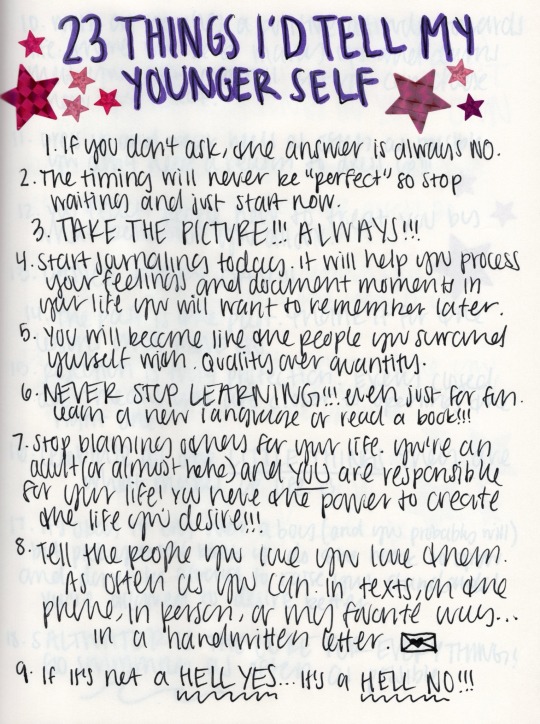 23 THINGS I'D TELL MY
YOUNGER SELF
1. If you don't ask, the answer is always NO.
2. The timing will never be "perfect" so stop
waiting and just start now.
3. TAKE THE PICTURE!!! ALWAYS!!!
4. Start journaling today. It will help you process
your feelings and document moments in
your life you will want to remember later.
5. You will become like the people you surround
yourself with. Quality over quantity.
6. NEVER STOP LEARNING!!! even just for fun.
learn a new language or read a book!!!
7. Stop blaming others for your life. you're an
adult (or almost hehe) and YOU are responsible
for your life! You have the power to create
the life you desire!!!
8. Tell the people you love you love them.
As often as you can. in texts, on the
phone, in person, or my favorite way...
in a handwritten letter.
9. If it's not a HELL YES... it's a HELL NO!!!